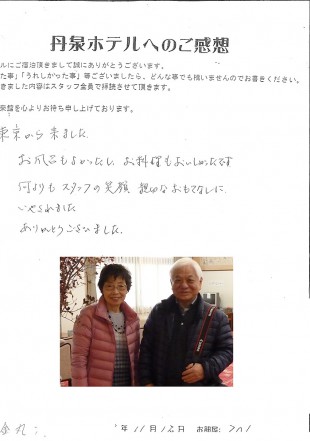 丹泉ホテルへのご感想
ルにご宿泊頂きまして誠にありがとうございます。
た事」「うれしかった事」等ございましたら、どんな事でも構いませんのでお書きください。
きました内容はスタッフ全員で拝読させて頂きます。
来館を心よりお待ち申し上げております。
東京から来ました
お風呂もよかったし お料理もおいしかったです
何よりもスタッフの笑顔 親切なおもてなしに
いやされました
ありがとうございました
年 11月12日 お部屋: